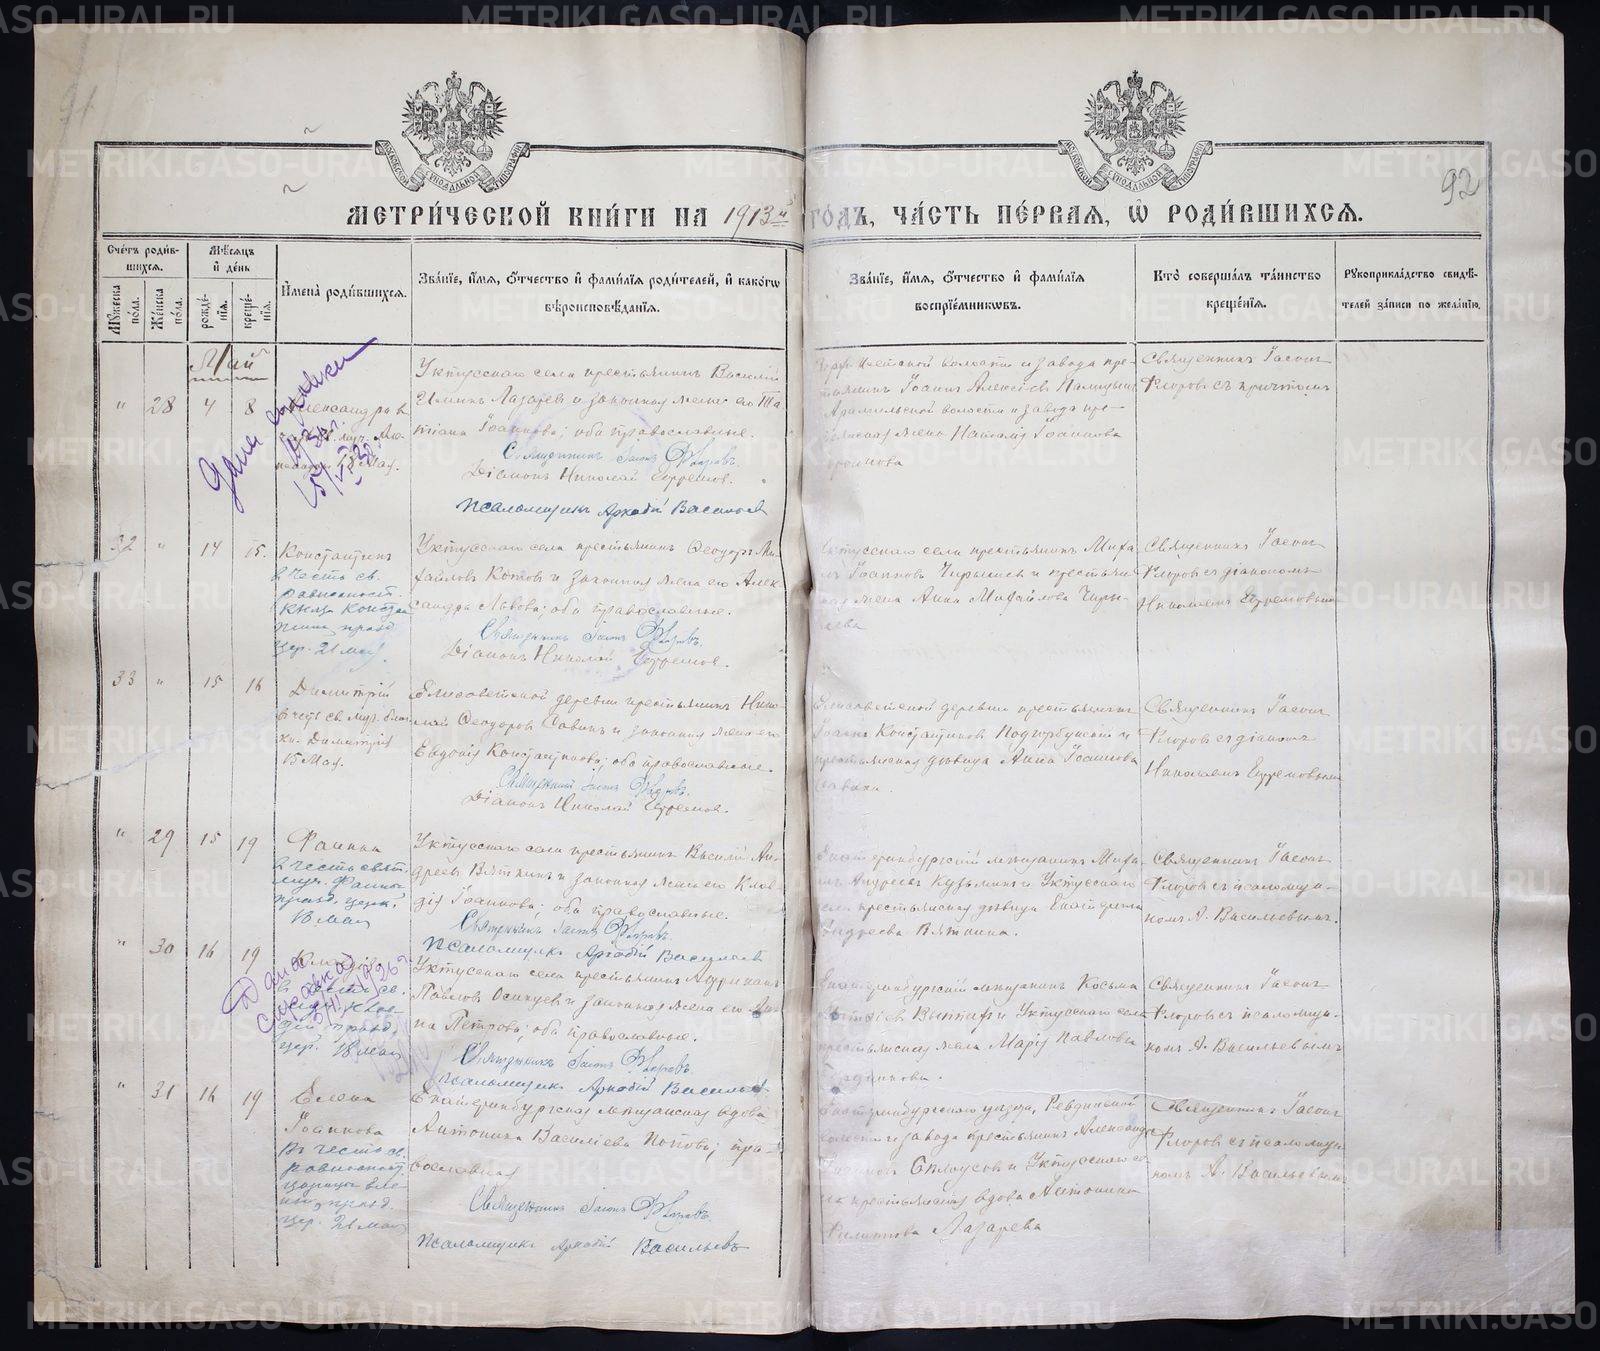 91
92
МЕТРИЧЕСКОЙ КНИГИ НА 1913й ГОДЪ, ЧАСТЬ ПЕРВАЯ, Ѡ РОДИВШИХСЯ.
Счетъ родившихся.
Мужеска пола.
Женска пола.
Мѣсяцъ и день
рожденія.
крещенія.
Имена родившихся.
Званіе, имя, отчество и фамилія родителей, и какогω вѣроисповѣданія.
Званіе, имя, отчество и фамилія воспріемниковъ.
Кто совершалъ таинство крещенія.
Рукоприкладство свидѣтелей записи по желанію.
Май
" 28 4 8
Александра
18 Мая.
Уктусскаго села крестьянинъ Василій
Лазаревъ и законная жена его Та
тіана Іоаннова; оба православные.
Священникъ Іасонъ Флоровъ.
Діаконъ Николай Ефремов.
Псаломщикъ Аркадій Васильевъ
волости и завода кре-
стьянинъ Іоаннъ Алексіевъ
Арамильской волости и завода кре-
жена Наталія Іоаннова
Священникъ Іасонъ
Флоровъ съ причтомъ
32 " 14 15.
Константинъ
в честь св.
равноапост.
Князя Конст
празд.
цер. 21 мая
Уктусскаго села крестьянинъ Феодоръ Ми-
хайловъ Котовъ и законная жена его Алек-
сандра Львова; оба православные.
Священникъ Іасонъ Флоровъ.
Діаконъ Николай Ефремов.
Уктусскаго села крестьянинъ Миха
илъ Іоанновъ Чирышевъ и крестьян
жена Анна Михайлова Чиры-
шева
Священникъ Іасонъ
Флоровъ съ діакономъ
Николаемъ Ефремовымъ
33 " 15 16
Димитрій
в честь св. муч. благ
кн. Димитрія
15 Мая.
Елисаветской деревни крестьянинъ Нико-
лай Феодоровъ Савинъ и законная жена его
Евдокія Константинова; оба православные.
Священникъ Іасонъ Флоровъ.
Діаконъ Николай Ефремов.
Елисаветской деревни крестьянинъ
Іоаннъ Константиновъ Подгорбунский и
крестьянская дѣвица Анна Іоаннова
Савина.
Священникъ Іасонъ
Флоровъ съ діакономъ
Николаемъ Ефремовымъ
" 29 15 19
Фаина
в честь свят
муч. Фаины
празд. церк.
18 мая
Уктусскаго села крестьянинъ Василій Ан-
дреевъ Вяткинъ и законная жена его Клав-
дія Іоаннова; оба православные.
Священникъ Іасонъ Флоровъ.
Псаломщикъ Аркадій Васильевъ
Екатеринбургскій мѣщанинъ Миха-
илъ Андреевъ Кузьминъ и Уктусскаго
села крестьянская дѣвица Екатерина
Андреева Вяткина.
Священникъ Іасонъ
Флоровъ съ псаломщи-
комъ А. Васильевымъ.
" 30 16 19
Клавдія
в честь св.
муч. Клав
дій празд.
цер. 18 мая
Дана
справка
Уктусскаго села крестьянинъ Африканъ
Павловъ Осинцевъ и законная жена его Ан-
на Петрова; оба православные.
Священникъ Іасонъ Флоровъ.
Псаломщикъ Аркадій Васильевъ
Екатеринбургскій мѣщанинъ Косьма
и Уктусскаго села
крестьянская жена Марія Павлова
Священникъ Іасонъ
Флоровъ съ псаломщи-
комъ А. Васильевымъ
" 31 16 19
Елена
Іоаннова
Въ честь св.
равноапост.
царицы Еле
ны, празд.
цер. 21 мая
Екатеринбургская мѣщанская вдова
Антонина Василіева Попова; пра-
вославная
Священникъ Іасонъ Флоровъ.
Псаломщикъ Аркадій Васильевъ
Екатеринбургскаго уѣзда, Ревдинской
волости и завода крестьянинъ Александръ
Бѣлоусовъ и Уктусскаго се
ла крестьянская вдова Антонина
Филиппова Лазарева
Священникъ Іасонъ
Флоровъ съ псаломщи-
комъ А. Васильевымъ
METRIKI.GASO-URAL.RU